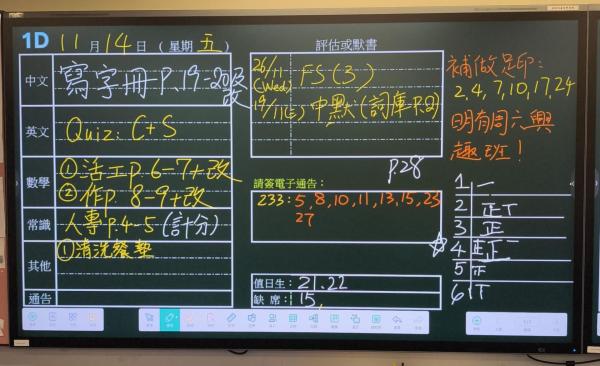 1D 11月14日（星期五）
中文 寫字冊 P.19-20及改
英文 Quiz: C+S
數學 ①活工p.6-7+改
②作p. 8-9+改
常識 人專p.4-5 (計分)
其他 ①清洗餐墊
通告
評估或默書
26/11 (Wed) FS(3)
19/11(三) 中默(詞庫P.2)
P.28
請簽電子通告：
233: 5,8,10,11,13,15,23
27
值日生：21.22
缺席：15,
補做足印：
2,4,7,10,17,24
明有周六興
趣班！
1 一
2 正丅
3 正
4 正正一
5 正
6 丅